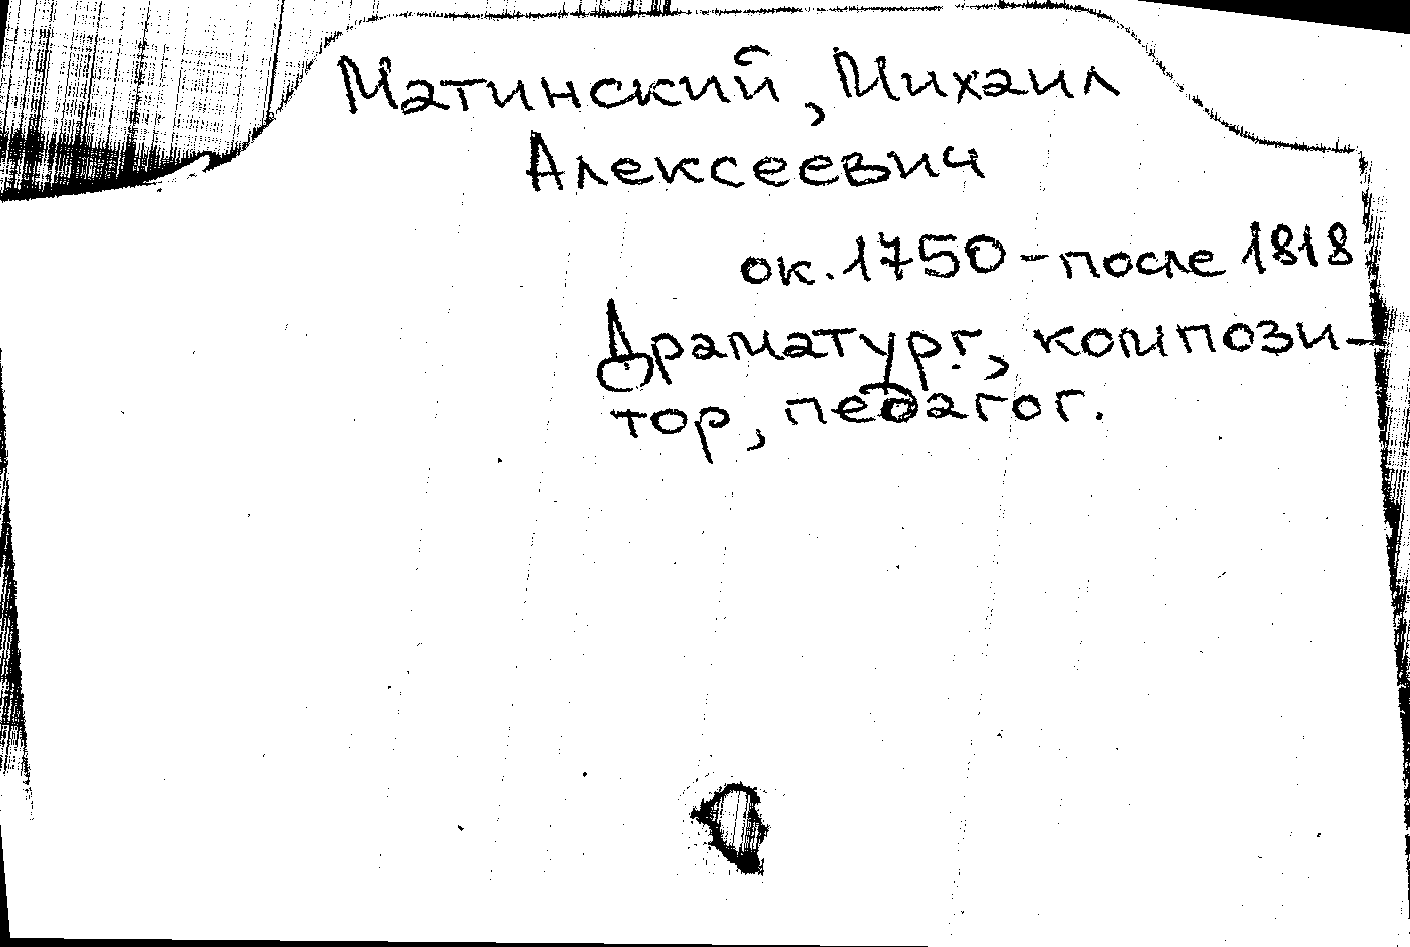 Матинский, Михаил
Алексеевич
ок. 1750 - после 1818
Драматург, компози-
тор, педагог.